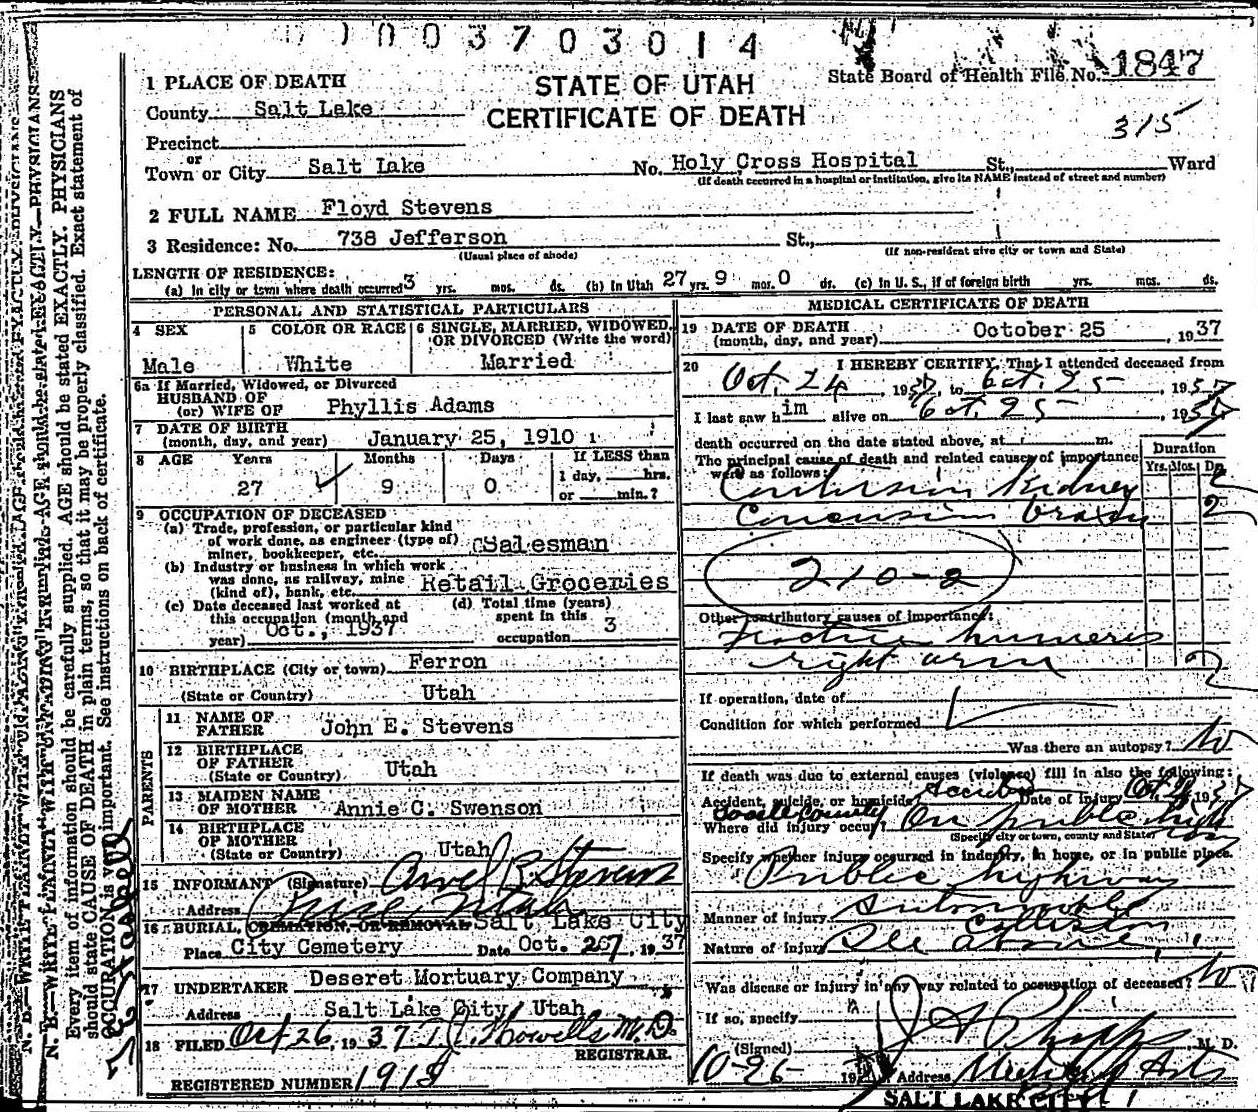 0003703014
STATE OF UTAH
CERTIFICATE OF DEATH
State Board of Health File No. 1847
315
1 PLACE OF DEATH
County Salt Lake
Precinct
or
Town or City Salt Lake No. Holy Cross Hospital St., Ward
(If death occurred in a hospital or institution, give its NAME instead of street and number)
2 FULL NAME Floyd Stevens
3 Residence: No. 738 Jefferson St.,
(Usual place of abode) (If non-resident give city or town and State)
LENGTH OF RESIDENCE:
(a) In city or town where death occurred 3 yrs. mos. ds. (b) In Utah 27 yrs. 9 mos. 0 ds. (c) In U. S., if of foreign birth yrs. mos. ds.
PERSONAL AND STATISTICAL PARTICULARS
4 SEX
Male
5 COLOR OR RACE
White
6 SINGLE, MARRIED, WIDOWED, OR DIVORCED (Write the word)
Married
6a If Married, Widowed, or Divorced
HUSBAND OF
(or) WIFE OF Phyllis Adams
7 DATE OF BIRTH
(month, day, and year) January 25, 1910
8 AGE Years Months Days If LESS than
1 day, hrs.
27 9 0 or min.?
9 OCCUPATION OF DECEASED
(a) Trade, profession, or particular kind
of work done, as engineer (type of)
miner, bookkeeper, etc. Salesman
(b) Industry or business in which work
was done, as railway, mine
(kind of), bank, etc. Retail Groceries
(c) Date deceased last worked at
this occupation (month and
year) Oct., 1937
(d) Total time (years)
spent in this
occupation 3
10 BIRTHPLACE (City or town) Ferron
(State or Country) Utah
PARENTS
11 NAME OF
FATHER John E. Stevens
12 BIRTHPLACE
OF FATHER
(State or Country) Utah
13 MAIDEN NAME
OF MOTHER Annie C. Swenson
14 BIRTHPLACE
OF MOTHER
(State or Country) Utah
15 INFORMANT (Signature) Stevens
Address Utah
16 BURIAL, CREMATION, OR REMOVAL Salt Lake City
Place City Cemetery Date Oct. 27, 1937
17 UNDERTAKER Deseret Mortuary Company
Address Salt Lake City, Utah
18 FILED Oct 26, 1937 T. J. Howells M.D.
REGISTRAR.
REGISTERED NUMBER 1918
MEDICAL CERTIFICATE OF DEATH
19 DATE OF DEATH
(month, day, and year) October 25, 1937
20 I HEREBY CERTIFY, That I attended deceased from
Oct. 24, 1937, to Oct. 25, 1937
I last saw him alive on Oct. 25, 1937
death occurred on the date stated above, at m.
The principal cause of death and related causes of importance
were as follows:
Duration
Yrs. Mos. Ds.
Contusion Kidney 2
Concusion brain 2
210-2
Other contributory causes of importance:
Fracture humerus
right arm 2
If operation, date of
Condition for which performed
Was there an autopsy? No
If death was due to external causes (violence) fill in also the following:
Accident, suicide, or homicide? Accident Date of injury Oct. 1937
Tooele County
Where did injury occur? On public highway
(Specify city or town, county and State)
Specify whether injury occurred in industry, in home, or in public place.
Public highway
Manner of injury Automobile
Collision
Nature of injury See above
Was disease or injury in any way related to occupation of deceased? No
If so, specify
(Signed) M. D.
10-26- 19 Address Medical Arts
SALT LAKE CITY
N. B.—WRITE PLAINLY WITH UNFADING
Every item of information should be carefully supplied. AGE should be stated EXACTLY. PHYSICIANS
should state CAUSE OF DEATH in plain terms, so that it may be properly classified. Exact statement of
OCCUPATION is very important. See instructions on back of certificate.